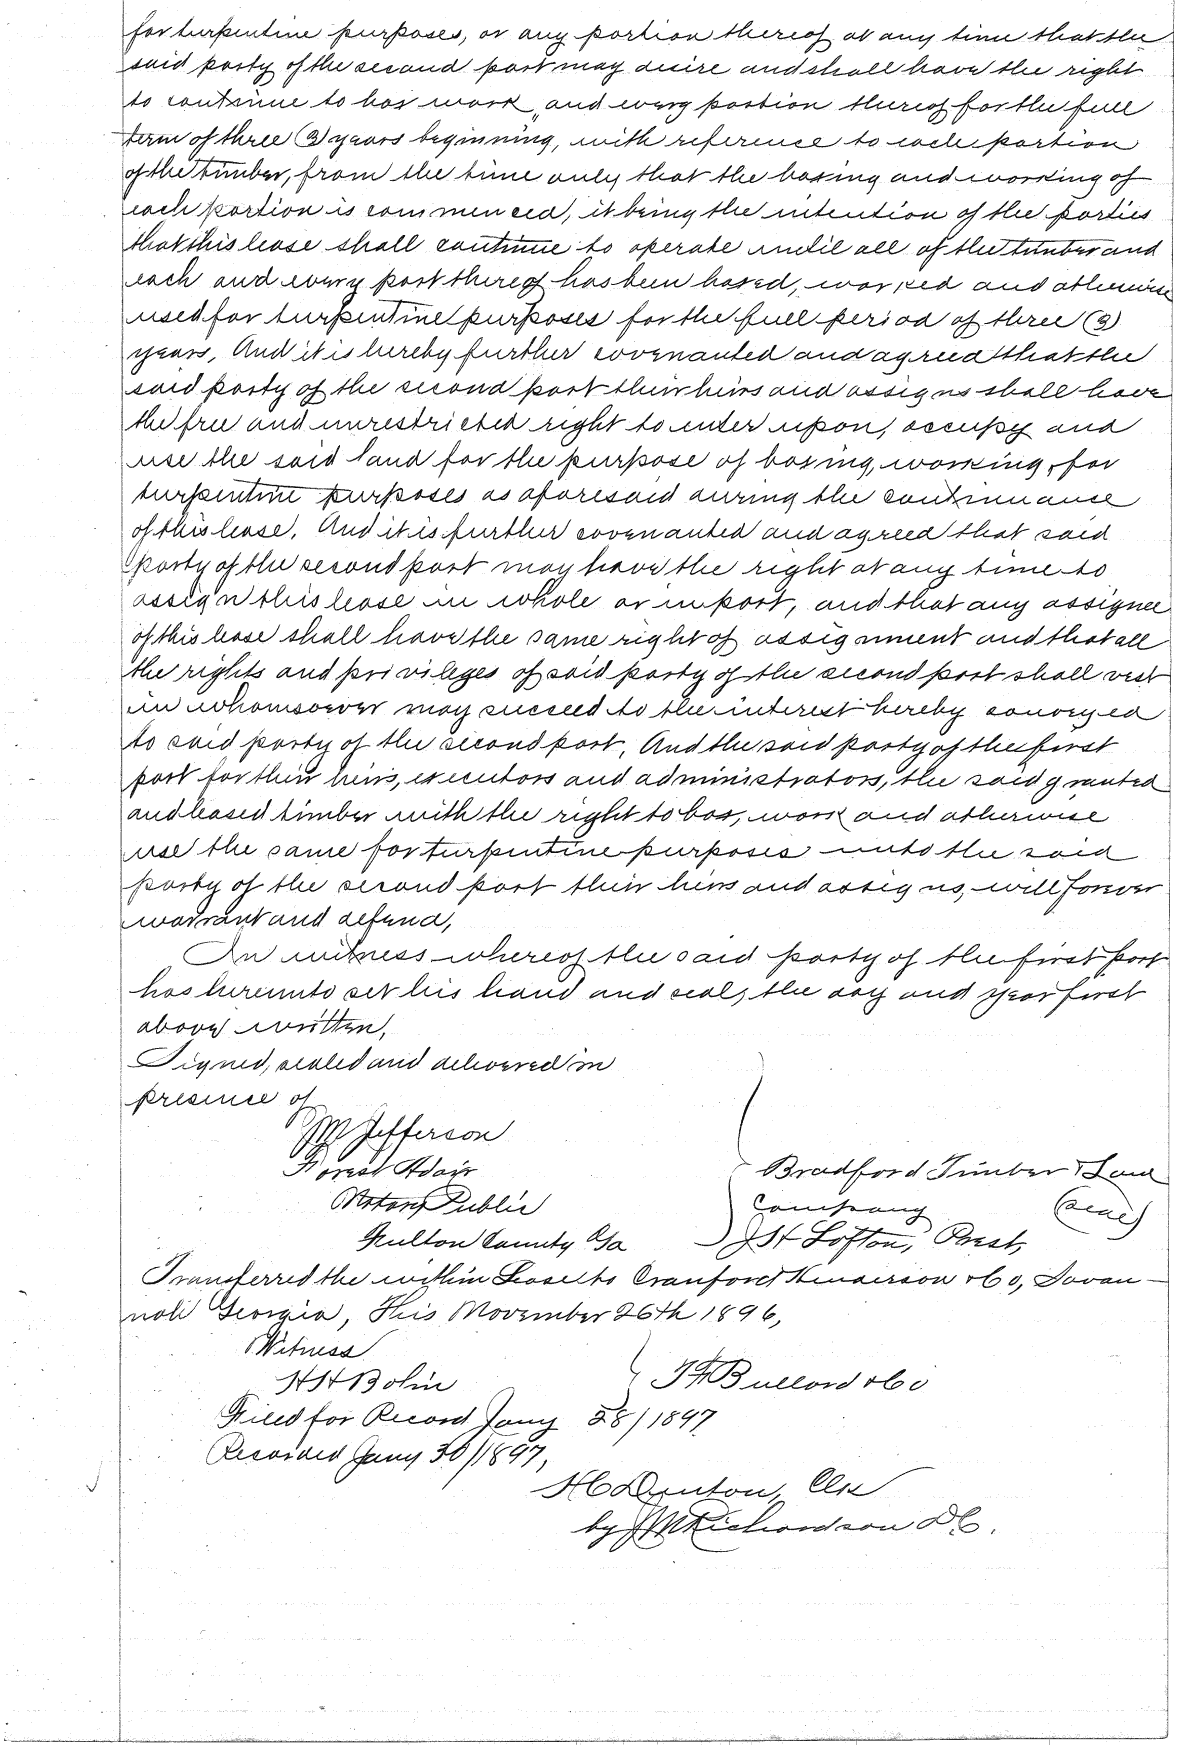 for turpentine purposes, or any portion thereof at any time that the
said party of the second part may desire and shall have the right
to continue to box work, and every portion thereof for the full
term of three (3) years beginning, with reference to each portion
of the timber, from the time only that the boxing and working of
each portion is commenced, it being the intention of the parties
that this lease shall continue to operate until all of the timber and
each and every part thereof has been boxed, worked and otherwise
used for turpentine purposes for the full period of three (3)
years, And it is hereby further covenanted and agreed that the
said party of the second part their heirs and assigns shall have
the free and unrestricted right to enter upon, occupy and
use the said land for the purpose of boxing, working, for
turpentine purposes as aforesaid during the continuance
of this lease. And it is further covenanted and agreed that said
party of the second part may have the right at any time to
assign this lease in whole or in part, and that any assignee
of this lease shall have the same right of assignment and that all
the rights and privileges of said party of the second part shall vest
in whomsoever may succeed to the interest hereby conveyed
to said party of the second part, And the said party of the first
part for their heirs, executors and administrators, the said granted
and leased timber with the right to box, work and otherwise
use the same for turpentine purposes unto the said
party of the second part their heirs and assigns, will forever
warrant and defend,
In witness whereof the said party of the first part
has hereunto set his hand and seal, the day and year first
above written,
Signed, sealed and delivered in
presence of
Jefferson
Forest Adair
Notary Public
Fulton County Ga
Bradford Timber & Land
Company (seal)
J H Lofton, Prest,
Transferred the within Lease to Cranford Henderson & Co, Savan-
nah Georgia, This November 26th 1896,
Witness
H H Bohin
Bullard & Co
Filed for Record Jany 28/1897
Recorded Jany 30/1897,
H C Denton, Clk
by J M Richardson D C.